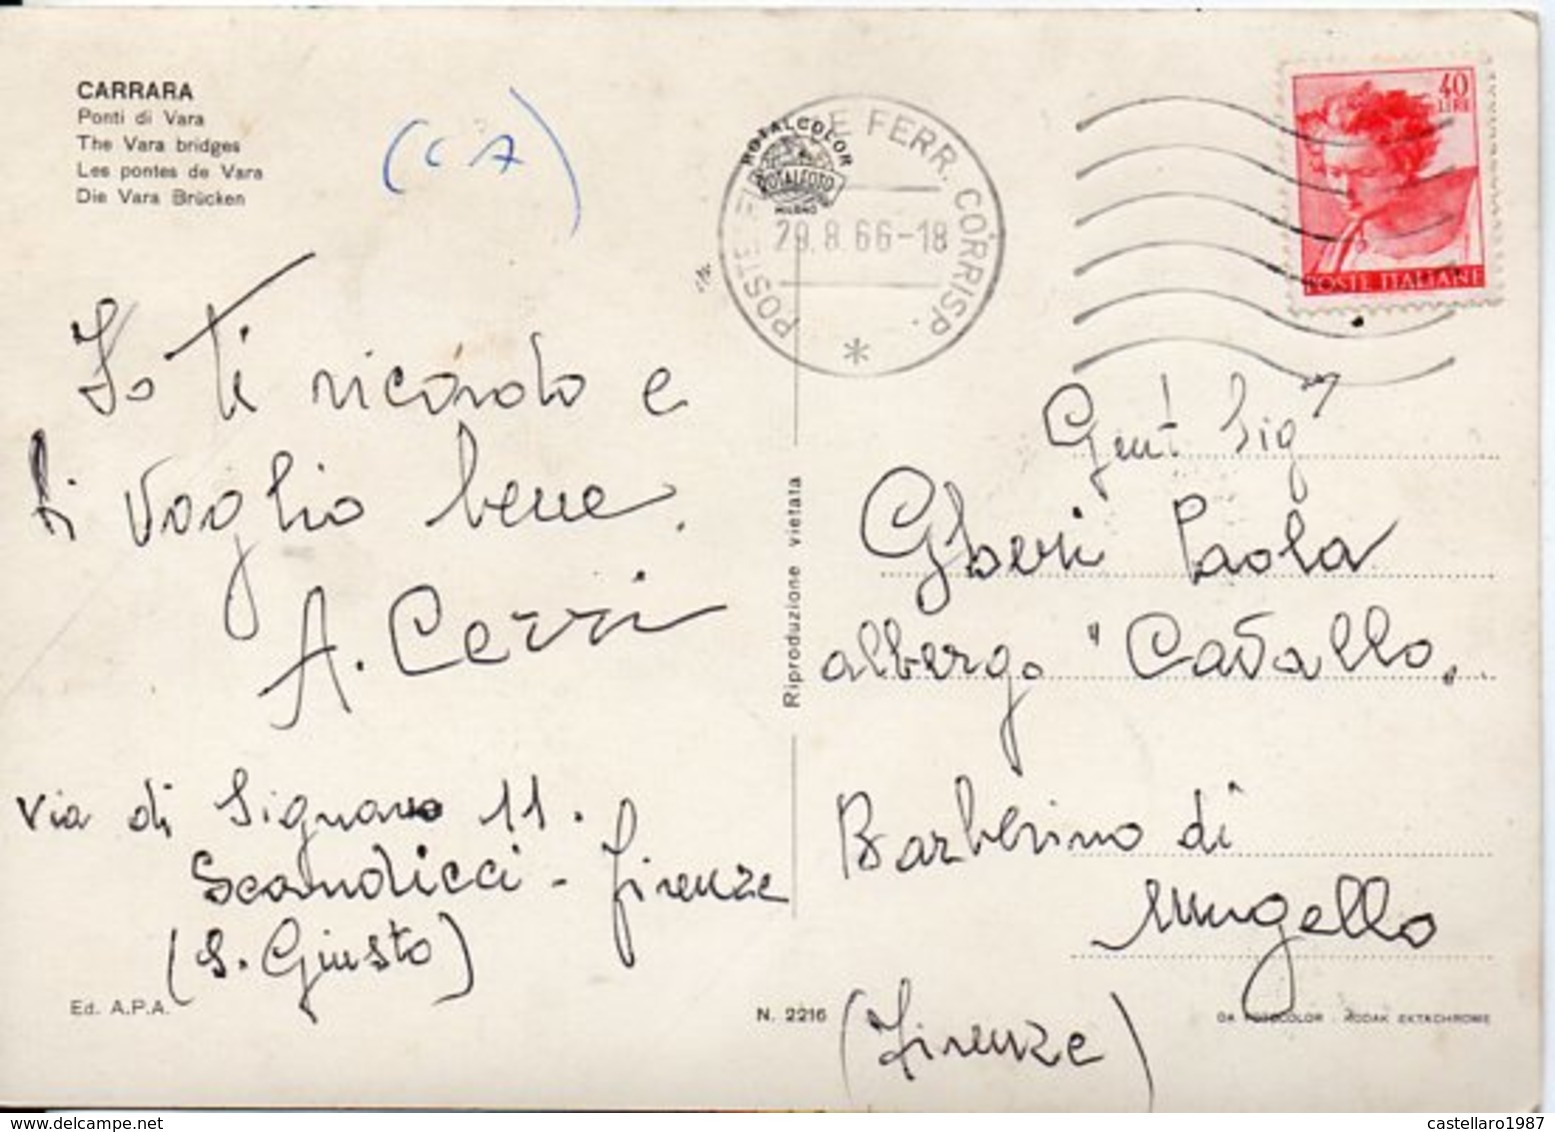 CARRARA
Ponti di Vara
The Vara bridges
Les pontes de Vara
Die Vara Brücken
(CA)
ROTALCOLOR
ROTALFOTO
MILANO
POSTE FERR. CORRISP.
29.8.66-18
40
LIRE
POSTE ITALIANE
Io ti ricordo e
ti voglio bene.
A. Cerri
via di Signano 11.
Scandicci - Firenze
(S. Giusto)
Ed. A.P.A.
Riproduzione vietata
N. 2216
Gent Sig
Gheri Paola
albergo "Cavallo"
Barberino di
Mugello
(Firenze)
DA FOTOCOLOR - KODAK EKTACHROME
castellaro1987
www.delcampe.net